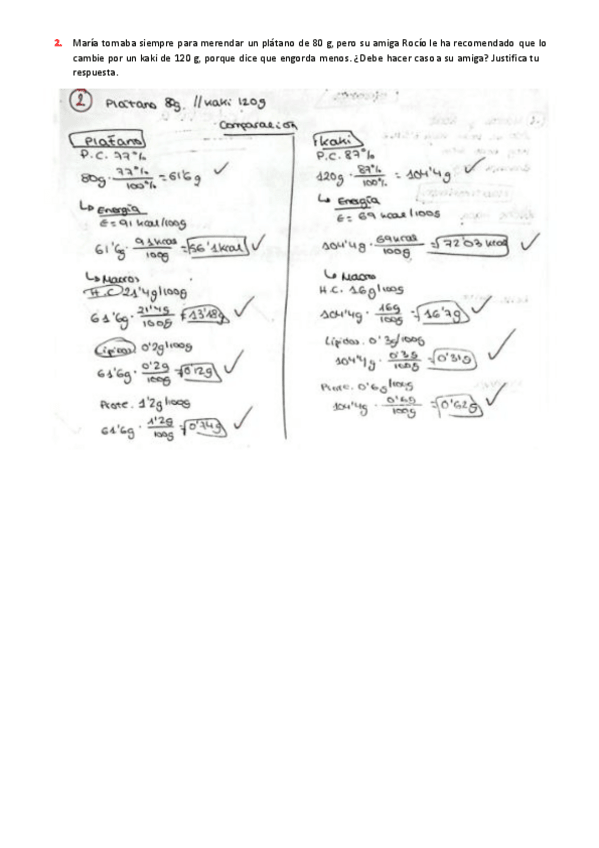 2. María tomaba siempre para merendar un plátano de 80 g, pero su amiga Rocío le ha recomendado que lo
cambie por un kaki de 120 g, porque dice que engorda menos. ¿Debe hacer caso a su amiga? Justifica tu
respuesta.
2 Plátano 80g. // Kaki 120g
Comparación
Plátano
P.C. 77%
80g · 77% / 100% = 61'6g
↳ Energía
E = 91 kcal/100g
61'6g · 91kcal / 100g = 56'1kcal
↳ Macros
H.C 21'4g/100g
61'6g · 21'4g / 100g = 13'18g
Lípidos 0'2g/100g
61'6g · 0'2g / 100g = 0'12g
Prote. 1'2g/100g
61'6g · 1'2g / 100g = 0'74g
Kaki
P.C. 87%
120g · 87% / 100% = 104'4g
↳ Energía
E = 69 kcal/100g
104'4g · 69kcal / 100g = 72'03 kcal
↳ Macro
H.C. 16g/100g
104'4g · 16g / 100g = 16'7g
Lípidos. 0'3g/100g
104'4g · 0'3g / 100g = 0'31g
Prote. 0'6g/100g
104'4g · 0'6g / 100g = 0'62g